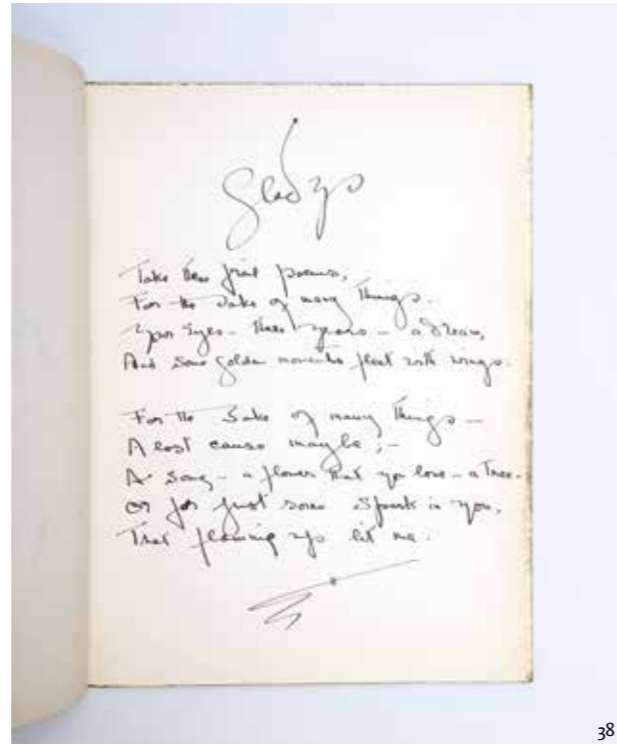 Gladys
Take these first poems,
For the Sake of many Things.
Your Eyes - three years - a Dream,
And some golden moments fleet with wings.
For the Sake of many Things -
A lost cause maybe; -
A Song - a flower that you love - a Tree -
Or for just some Spark in you,
That flaming up lit me.
38